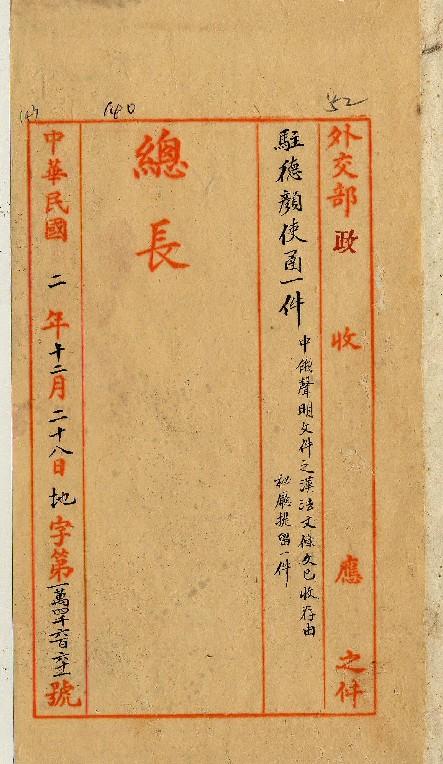 52
140
外交部政收應之件
駐德顏使函一件
中俄聲明文件之漢法文條文已收存由
秘廳提留一件
總長
中華民國二年十二月二十八日地字第一萬四千六百六十一號